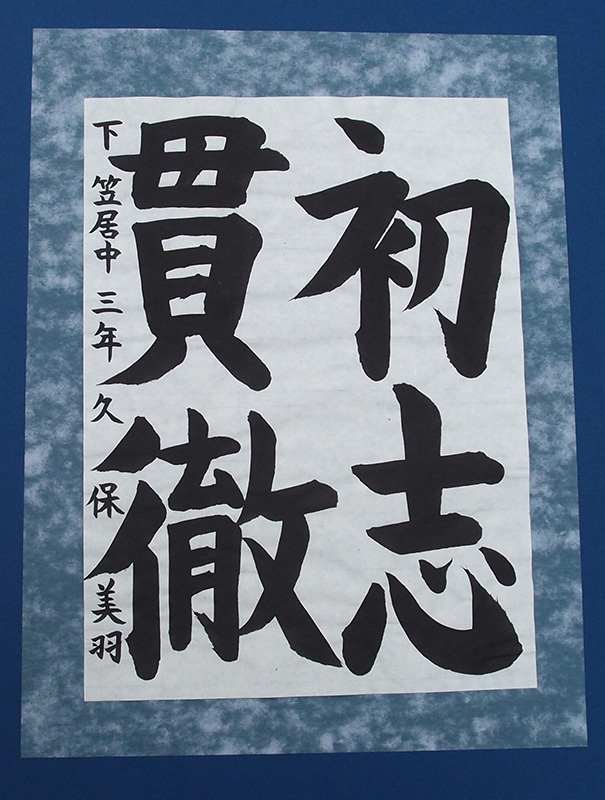 初志
貫徹
下笠居中 三年 久保 美羽